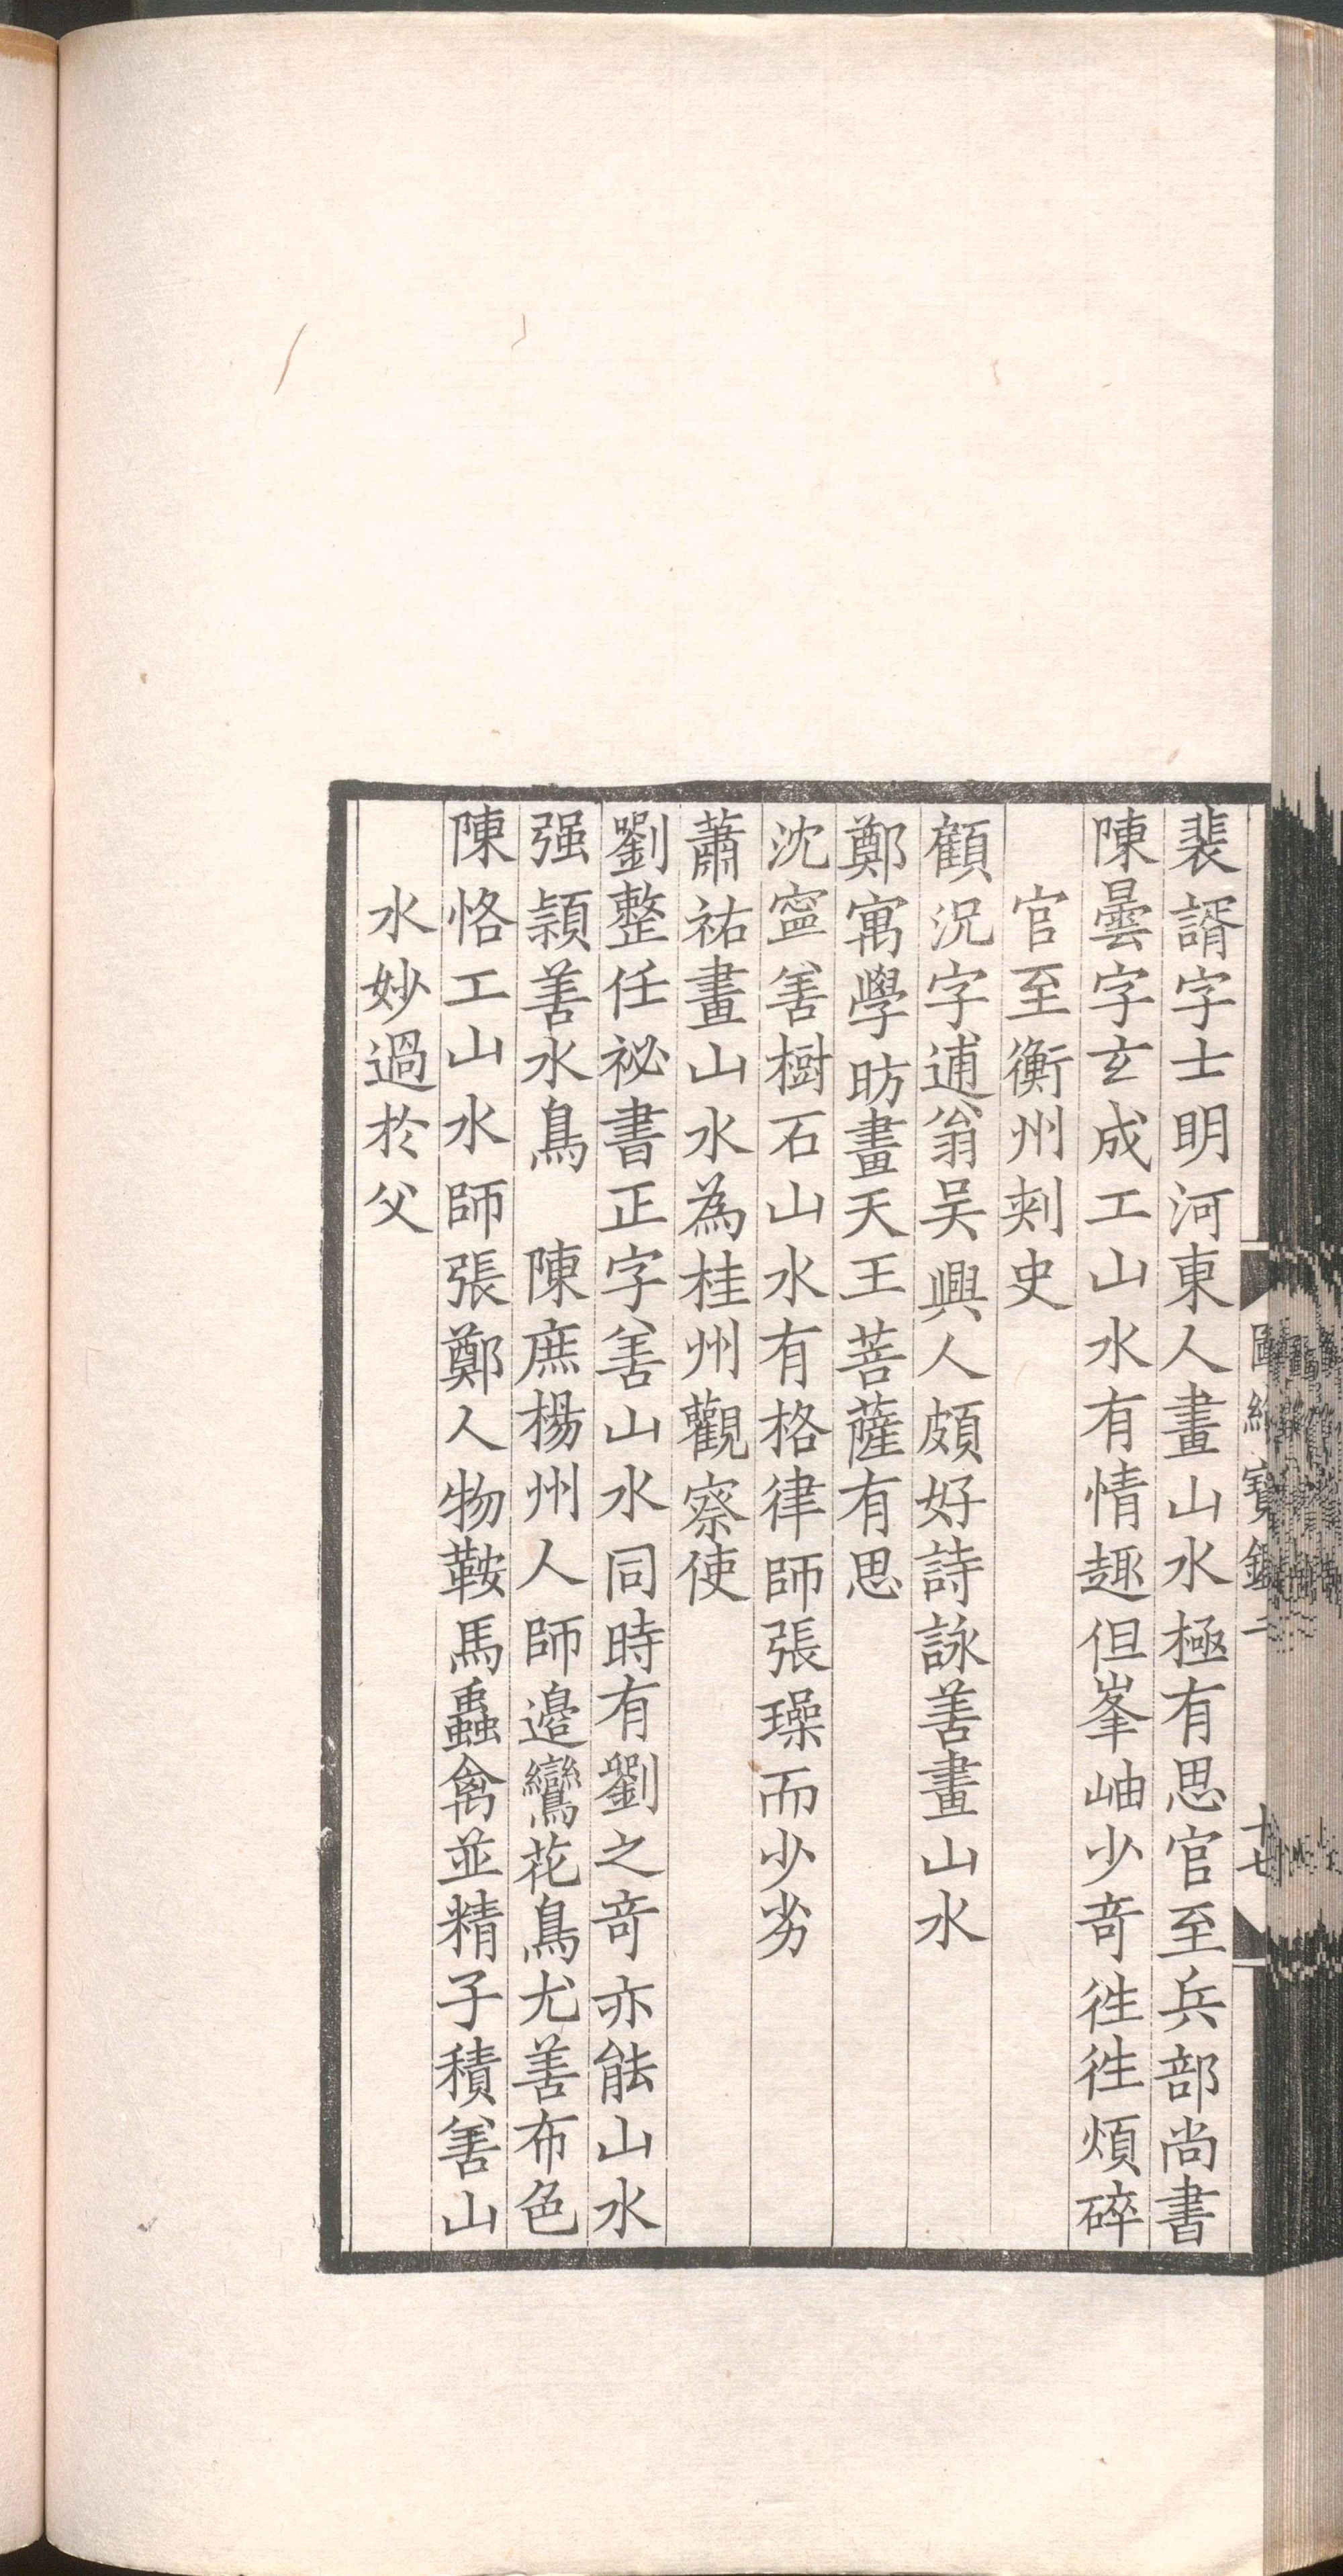 裴諝字士明河東人畫山水極有思官至兵部尚書
陳曇字玄成工山水有情趣但峯岫少奇徃徃煩碎
官至衡州刾史
顧況字逋翁吴興人頗好詩詠善畫山水
鄭㝢學昉畫天王菩薩有思
沈寍善樹石山水有格律師張璪而少劣
蕭祐畫山水為桂州觀察使
劉整任祕書正字善山水同時有劉之竒亦能山水
强頴善水鳥　陳庶楊州人師邉鸞花鳥尤善布色
陳恪工山水師張鄭人物鞍馬蟲禽並精子積善山
水妙過於父
圖繪寶鑑二
十七